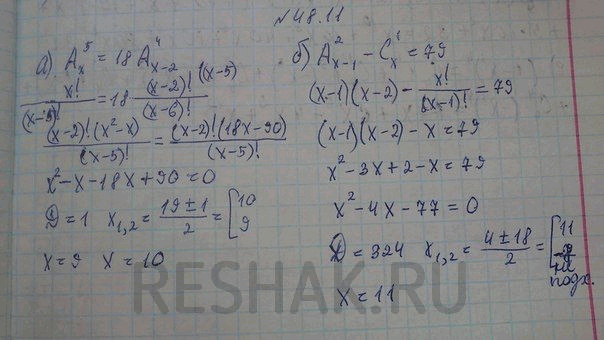 №48.11
а) A_x^5 = 18 A_{x-2}^4
x!/(x-5)! = 18 (x-2)!/(x-6)! ^{(x-5)}
(x-2)!(x²-x)/(x-5)! = (x-2)!(18x-90)/(x-5)!
x²-x-18x+90=0
D=1 x_{1,2} = (19±1)/2 = [10 9
x=9 x=10
б) A_{x-1}^2 - C_x^1 = 79
(x-1)(x-2) - x!/(x-1)! = 79
(x-1)(x-2)-x=79
x²-3x+2-x=79
x²-4x-77=0
D=324 x_{1,2} = (4±18)/2 = [11 -7
не подх.
x=11
RESHAK.RU